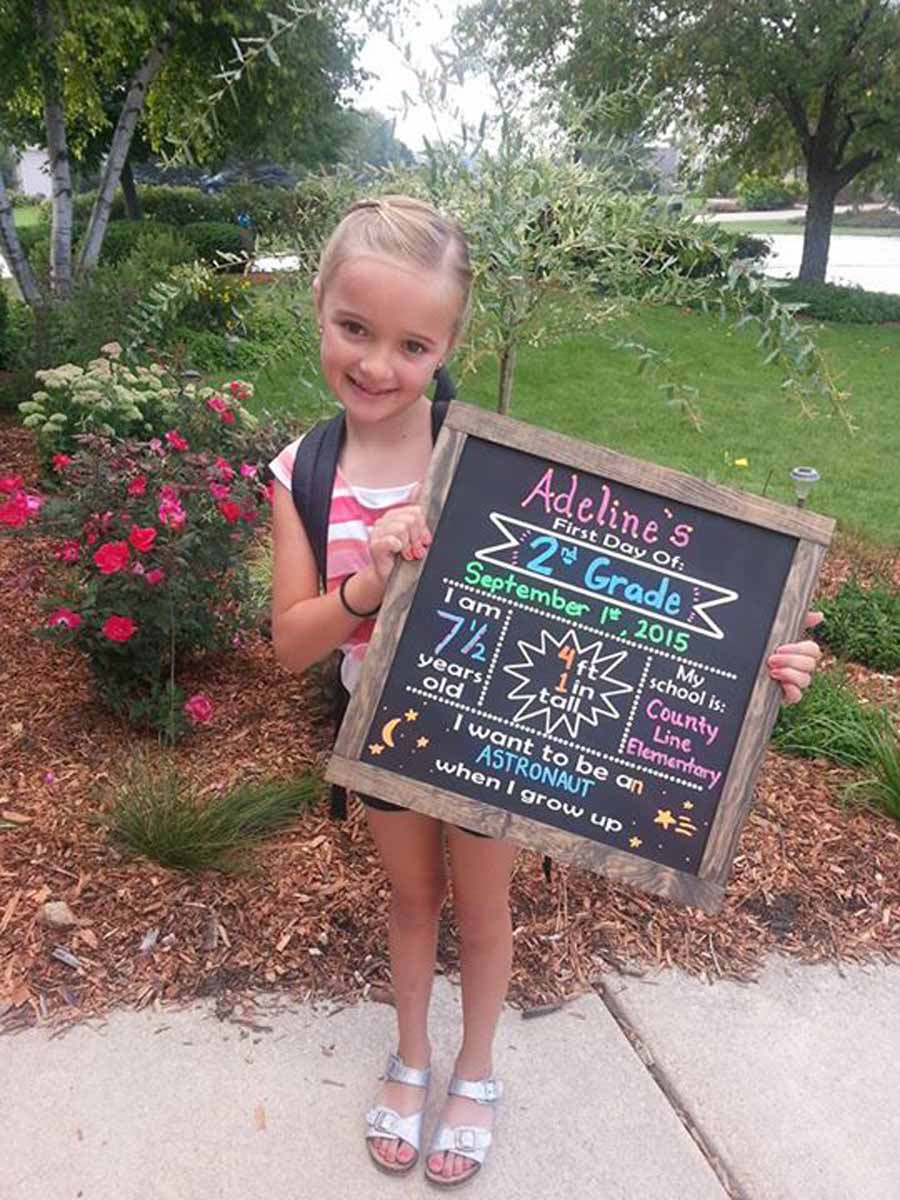 Adeline's
First Day Of:
2nd Grade
September 1st, 2015
I am
7 1/2
years
old
4 ft
1 in
tall
My
school is:
County
Line
Elementary
I want to be an
ASTRONAUT
when I grow up